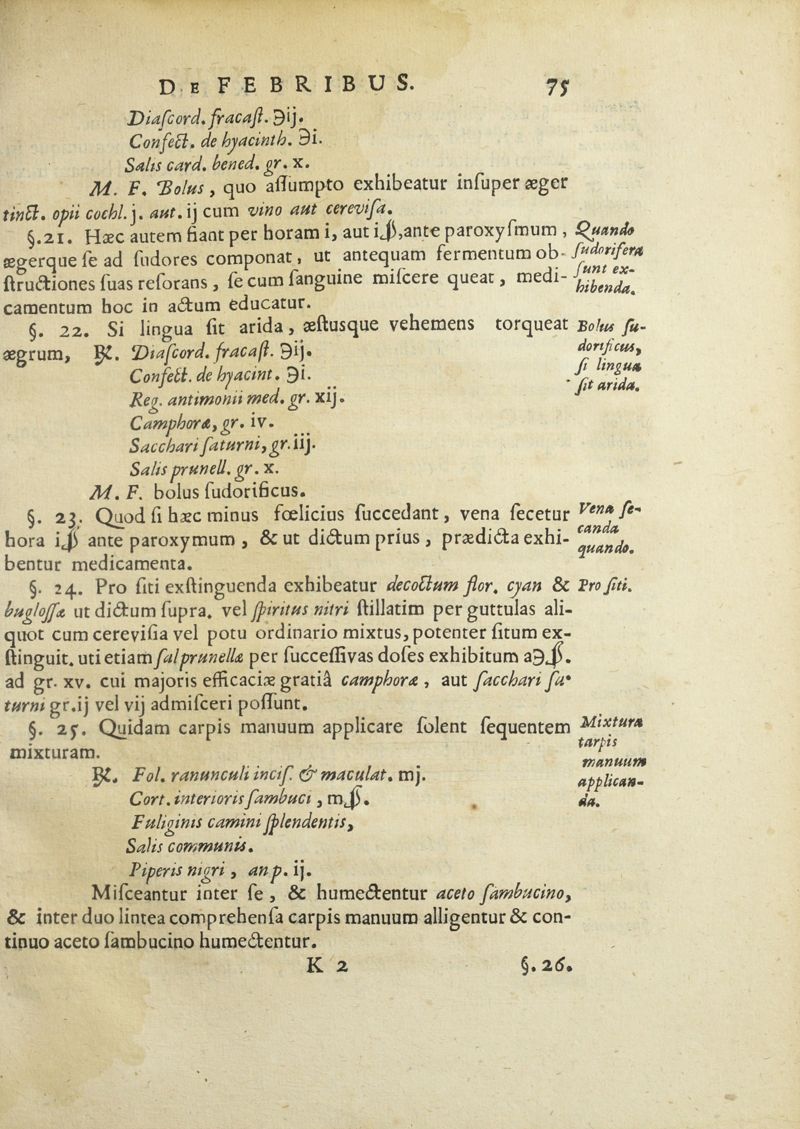 DE FEBRIBUS. 75
Diaſcord. fracaſt. ℈ij.
Confect. de hyacinth. ℈i.
Salis card. bened. gr. x.
M. F. Bolus, quo aſſumpto exhibeatur inſuper æger
tinct. opii cochl. j. aut. ij cum vino aut cereviſa.
§. 21. Hæc autem fiant per horam i, aut iß, ante paroxyſmum,
ægerque ſe ad ſudores componat, ut antequam fermentum ob-
ſtructiones ſuas reſorans, ſe cum ſanguine miſcere queat, medi-
camentum hoc in actum educatur.
Quando
ſudorifera
ſunt ex-
hibenda.
§. 22. Si lingua ſit arida, æſtusque vehemens torqueat
ægrum, ℞. Diaſcord. fracaſt. ℈ij.
Confect. de hyacint. ℈i.
Reg. antimonii med. gr. xij.
Camphoræ, gr. iv.
Sacchari ſaturni, gr. iij.
Salis prunell. gr. x.
M. F. bolus ſudorificus.
Bolus ſu-
dorificus,
ſi lingua
ſit arida.
§. 23. Quod ſi hæc minus fœlicius ſuccedant, vena ſecetur
hora iß ante paroxymum, & ut dictum prius, prædicta exhi-
bentur medicamenta.
Vena ſe-
canda
quando.
§. 24. Pro ſiti exſtinguenda exhibeatur decoctum flor. cyan &
bugloſſæ ut dictum ſupra. vel ſpiritus nitri ſtillatim per guttulas ali-
quot cum cereviſia vel potu ordinario mixtus, potenter ſitum ex-
ſtinguit. uti etiam ſal prunellæ per ſucceſſivas doſes exhibitum a℈ß.
ad gr. xv. cui majoris efficaciæ gratiâ camphoræ, aut ſacchari ſa-
turni gr. ij vel vij admiſceri poſſunt.
Pro ſiti.
§. 25. Quidam carpis manuum applicare ſolent ſequentem
mixturam.
℞. Fol. ranunculi inciſ. & maculat. mj.
Cort. interioris ſambuci, mß.
Fuliginis camini ſplendentis,
Salis communis.
Piperis nigri, an p. ij.
Mixtura
tarpis
manuum
applican-
da.
Miſceantur inter ſe, & humectentur aceto ſambucino,
& inter duo lintea comprehenſa carpis manuum alligentur & con-
tinuo aceto ſambucino humectentur.
K 2 §. 26.